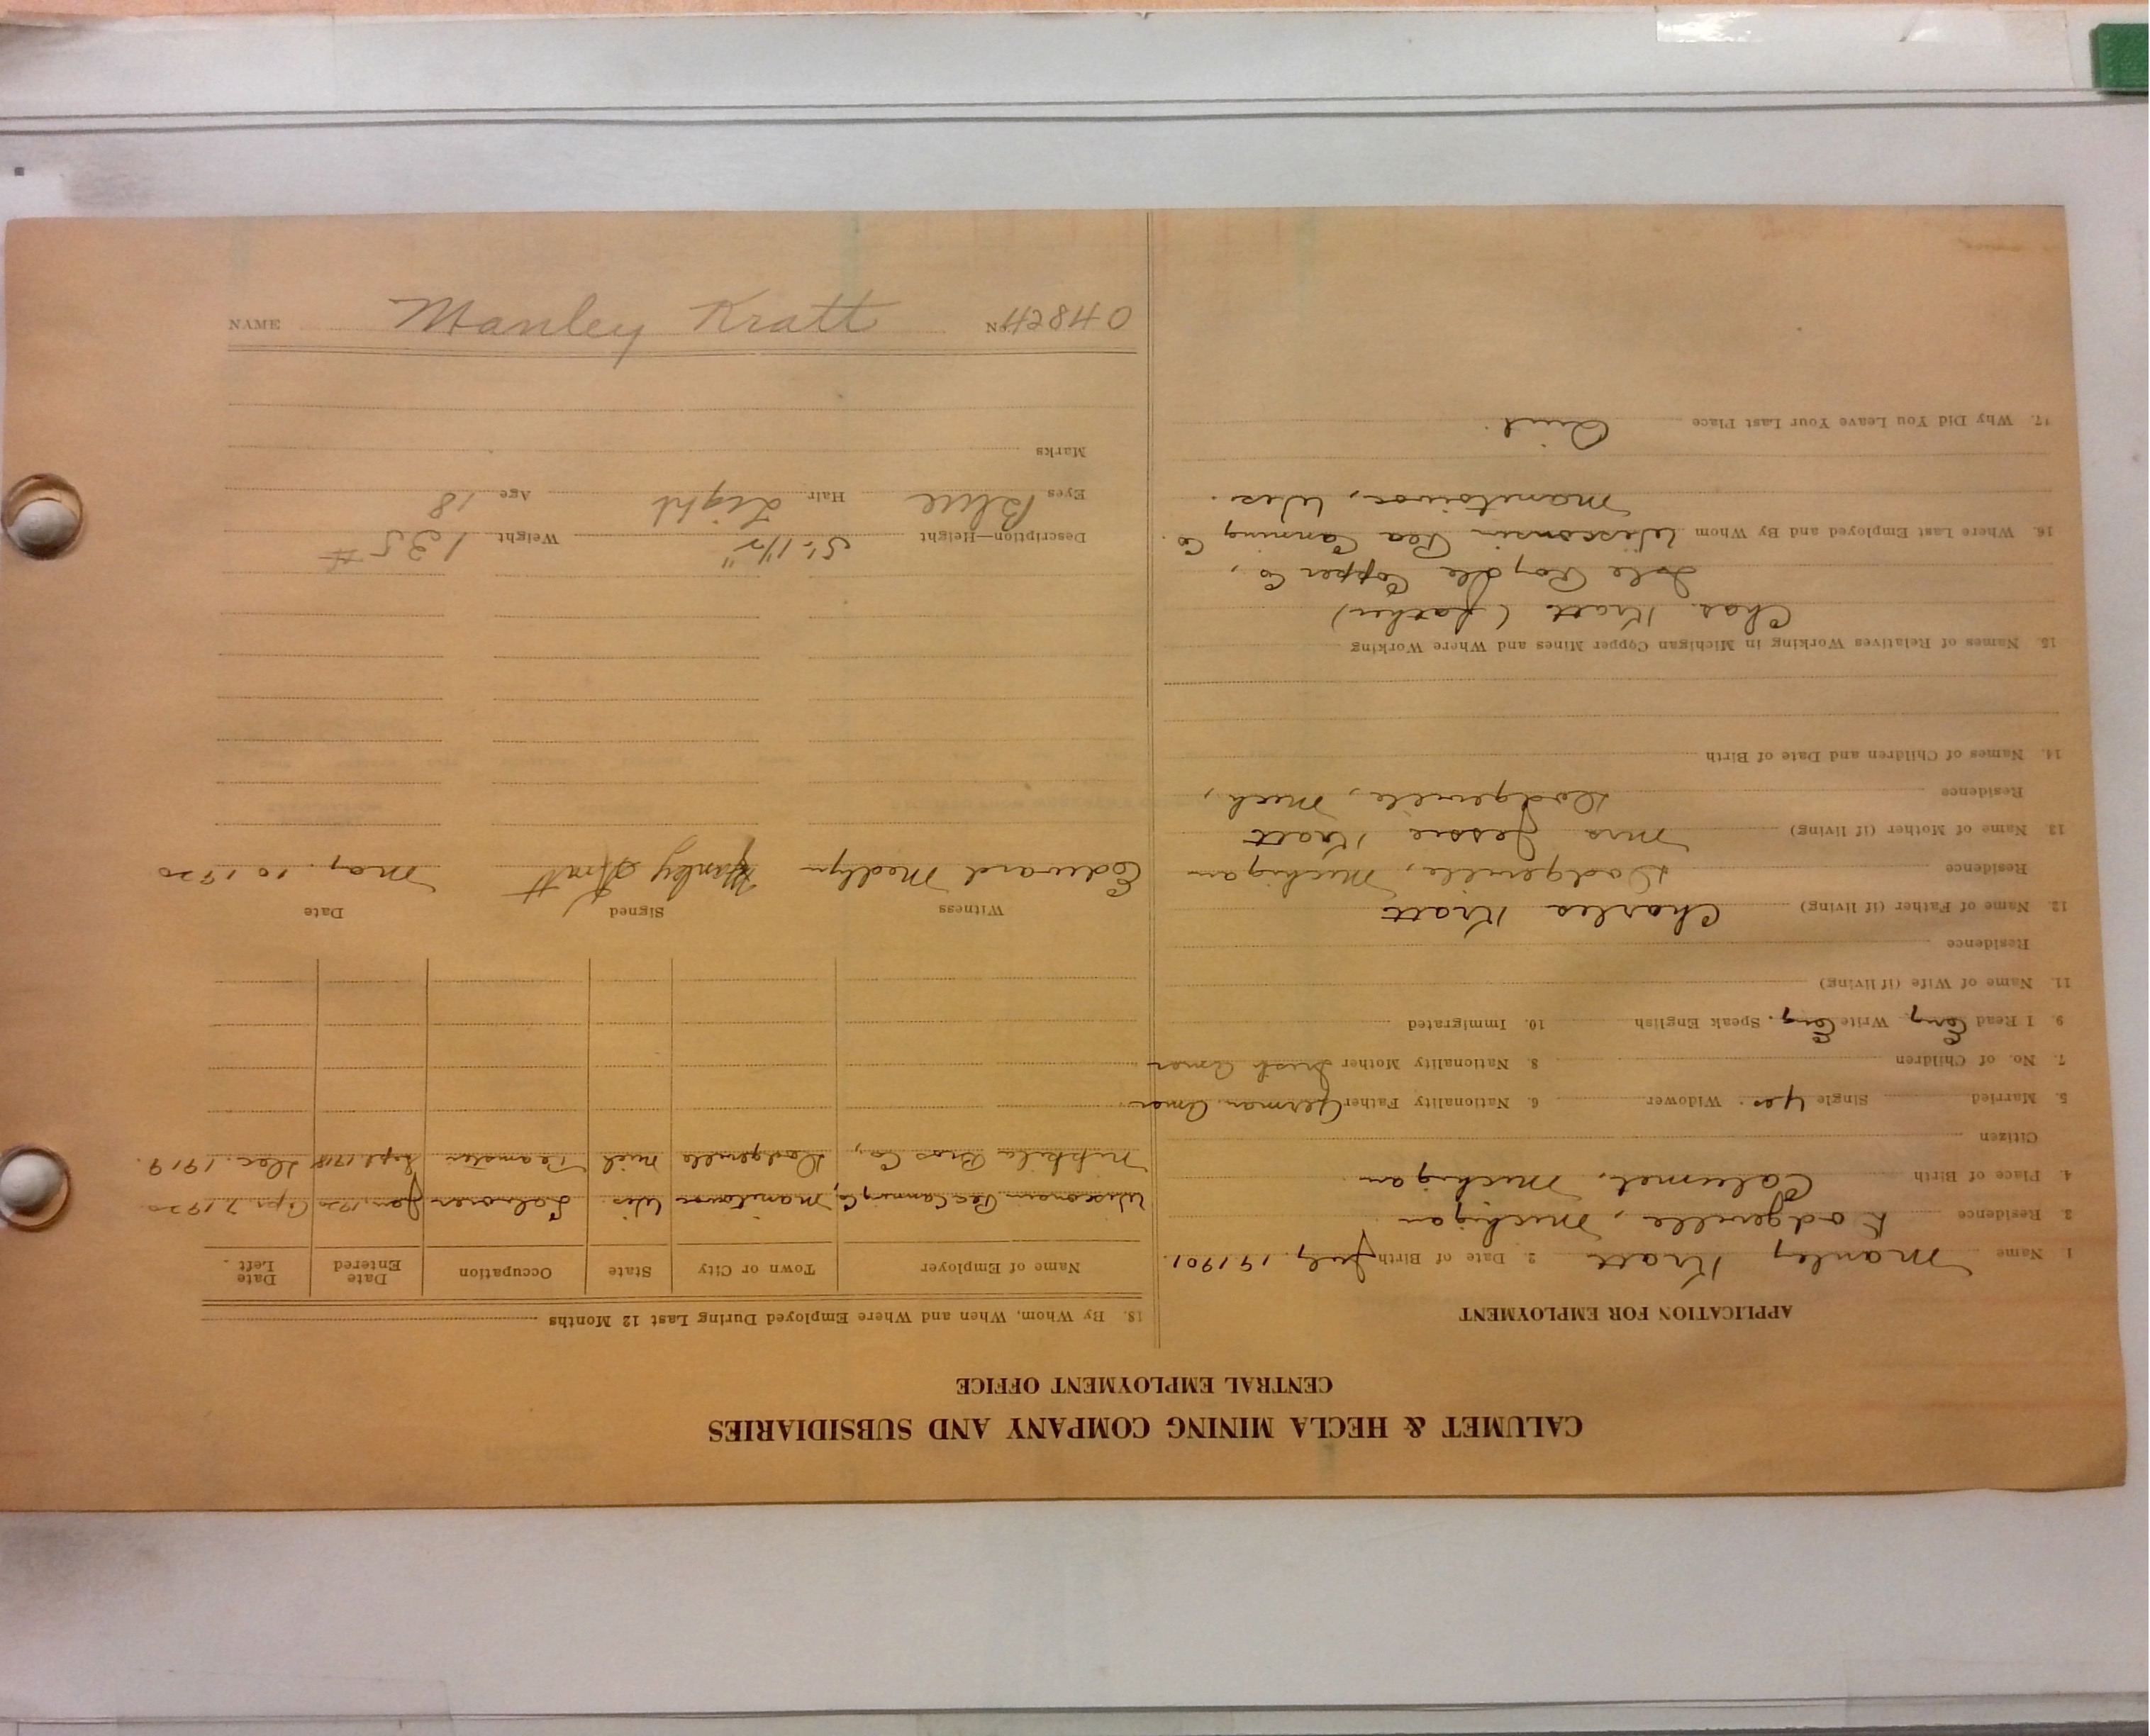 CALUMET & HECLA MINING COMPANY AND SUBSIDIARIES
CENTRAL EMPLOYMENT OFFICE
APPLICATION FOR EMPLOYMENT
1 Name Manley Kratt 2. Date of Birth July 19 1901.
3. Residence Dodgeville, Michigan
4. Place of Birth Calumet, Michigan
Citizen
5. Married Single Yes. Widower 6. Nationality Father German Amer
7. No. of Children 8. Nationality Mother Irish Amer
9. I Read Eng Write Eng. Speak English 10. Immigrated
11. Name of Wife (if living)
Residence
12. Name of Father (if living) Charles Kratt
Residence Dodgeville, Michigan
13. Name of Mother (if living) Mrs Jessie Kratt
Residence Dodgeville, Mich,
14. Names of Children and Date of Birth
15. Names of Relatives Working in Michigan Copper Mines and Where Working
Chas. Kratt (father)
Isle Royale Copper Co,
16. Where Last Employed and By Whom Wisconsin Pea Canning Co.
Manitowoc, Wis.
17. Why Did You Leave Your Last Place Quit.
18. By Whom, When and Where Employed During Last 12 Months
Name of Employer Town or City State Occupation Date Entered Date Left
Wisconsin Pea Canning Co, Manitowoc Wis Laborer Jan, 1920 Apr 7 1920.
Bros Co, Dodgeville Mich Teamster Sept 1918 Dec. 1919.
Witness Signed Date
Edward Medlyn Manley Kratt May 10 1920
Description—Height 5'-1 1/2" Weight 135 #
Eyes Blue Hair Light Age 18
Marks
NAME Manley Kratt No. 42840